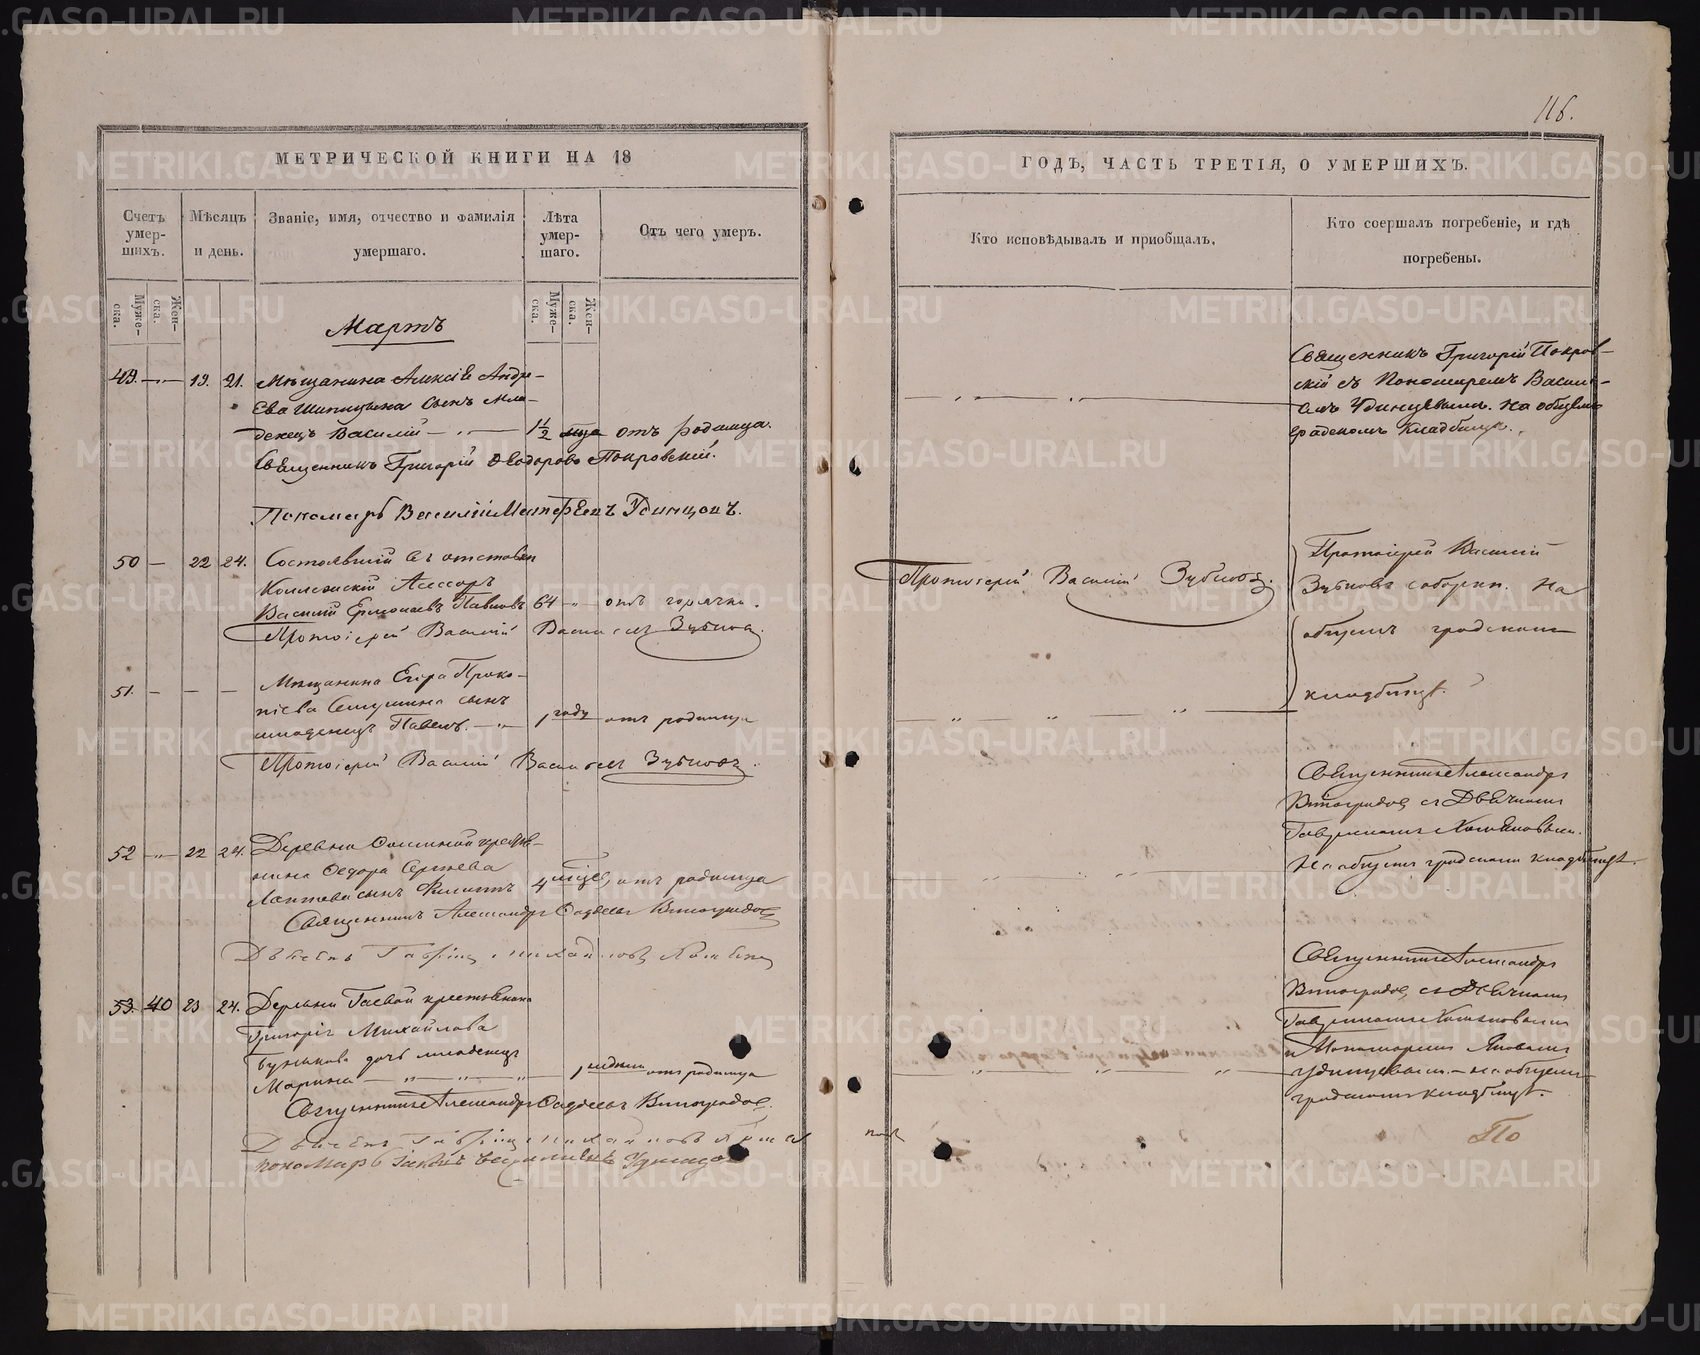 116.
МЕТРИЧЕСКОЙ КНИГИ НА 18
Счетъ умер-шихъ.
Мѣсяцъ и день.
Званіе, имя, отчество и фамилія умершаго.
Лѣта умер-шаго.
Отъ чего умеръ.
Муже-ска.
Жен-ска.
Муже-ска.
Жен-ска.
Мартъ
49. — 19. 21. Мѣщанина Алексѣя Андре-
ева Шипицына сынъ мла-
денецъ Василій — 1½ мца отъ родимца.
Священникъ Григорій Ѳеодоровъ Покровскій.
Пономарь Василій Матфеевъ Удинцовъ.
50 — 22 24. Состоявшій въ отставкѣ
Коллежскій Асессоръ
Василій Ермолаевъ Павловъ 64 — отъ горячки.
Протоіерей Василій Васильевъ Зубковъ.
51. — — — Мѣщанина Егора Проко-
піева сынъ
младенецъ Павелъ. — 1 году отъ родимца
Протоіерей Василій Васильевъ Зубковъ.
52 — 22 24. Деревни крестья-
нина Ѳедора Сергѣева
Лаптева сынъ Филиппъ 4 отъ родимца
Священникъ Александръ Виноградовъ
Дьячекъ Гавріилъ
53. 40 23 24. Деревни Гаевой крестьянина
Григорія Михайлова
дочь младенецъ
Марина — 1 недели отъ родимца
Священникъ Александръ Виноградовъ.
Дьячекъ Гавріилъ
пономарь Удинцовъ
ГОДЪ, ЧАСТЬ ТРЕТІЯ, О УМЕРШИХЪ.
Кто исповѣдывалъ и пріобщалъ.
Кто соершалъ погребеніе, и гдѣ погребены.
Священникъ Григорій Покров-
скій съ Пономаремъ Василі-
емъ Удинцевымъ. На общемъ
градскомъ кладбищѣ.
Протоіерей Василій Зубковъ.
Протоіерей Василій
Зубковъ соборнѣ. На
общемъ градскомъ
кладбищѣ.
Священникъ Александръ
Виноградовъ съ Дьячкомъ
Гавріиломъ
На общемъ градскомъ кладбищѣ.
Священникъ Александръ
Виноградовъ съ Дьячкомъ
Гавріиломъ
и Пономаремъ
Удинцевымъ. — на общемъ
градскомъ кладбищѣ.
По
METRIKI.GASO-URAL.RU